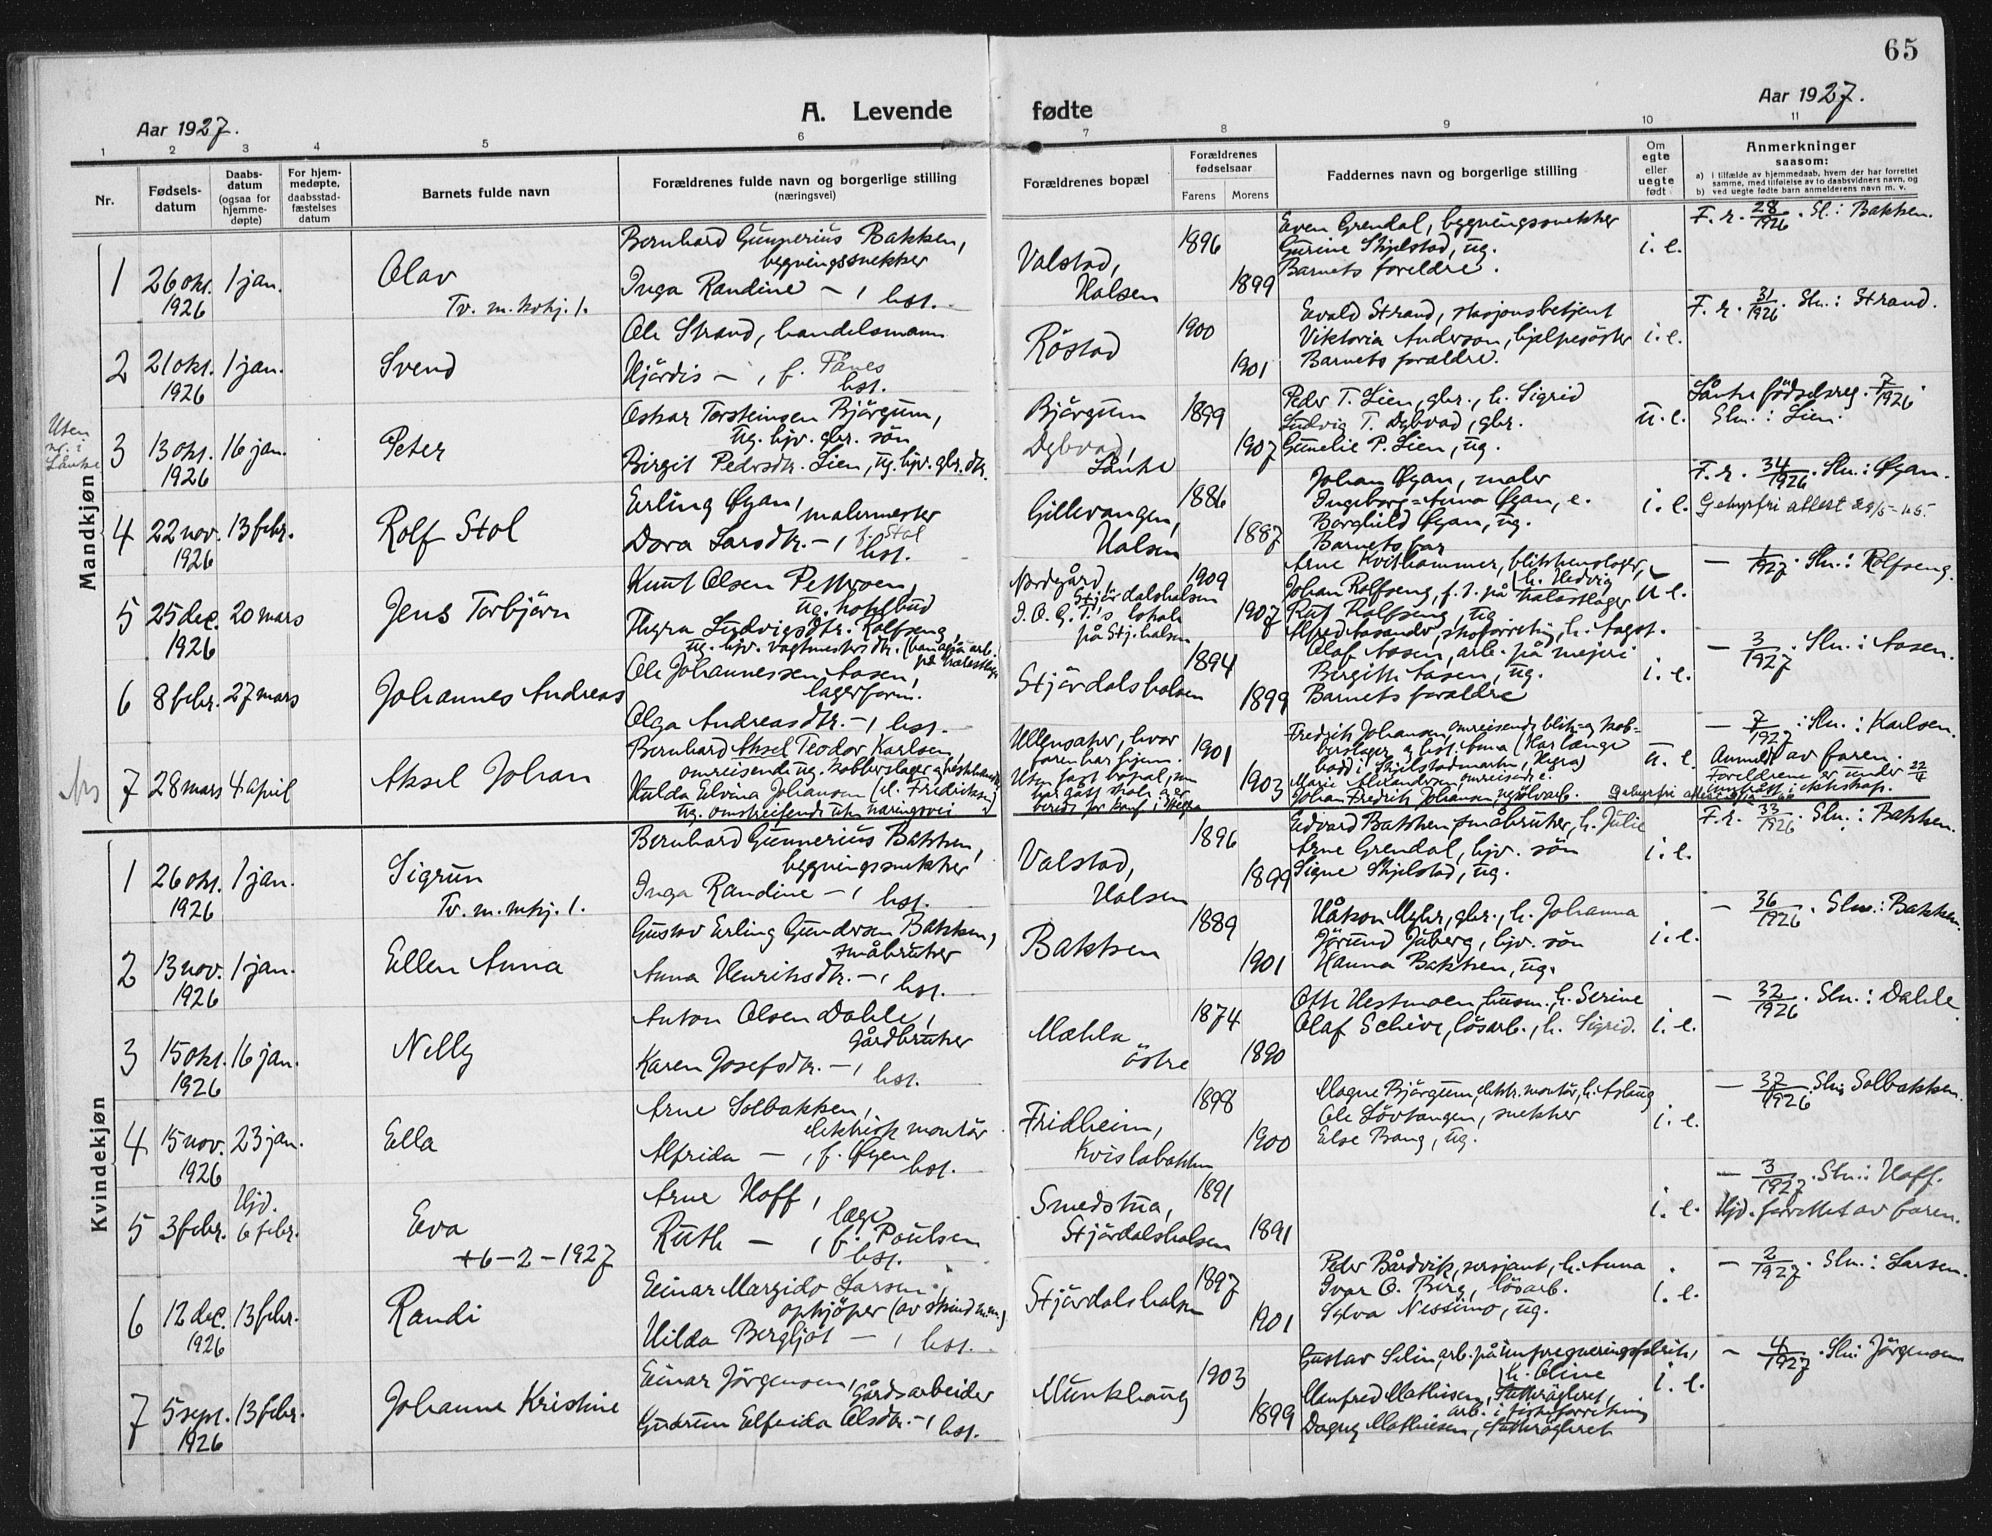 65
Aar 1927.
A. Levende fødte
Aar 1927.
1 2 3 4 5 6 7 8 9 10 11
Nr.
Fødsels-
datum
Daabs-
datum
(ogsaa for
hjemme-
døpte)
For hjem-
medøpte,
daabsstad-
fæstelses
datum
Barnets fulde navn
Forældrenes fulde navn og borgerlige stilling
(næringsvei)
Forældrenes bopæl
Forældrenes
fødselsaar
Farens Morens
Faddernes navn og borgerlige stilling
Om
egte
eller
uegte
født
Anmerkninger
saasom:
a) i tilfælde av hjemmedaab, hvem der har forrettet
samme, med tilføielse av to daabsvidners navn, og
b) ved uegte fødte barn anmelderens navn m. v.
Mandkjøn
1 26 okt. 1926 1 jan.
Olav
Tv. m. kvkj. 1.
Bernhard Gunnerius Bakken,
bygningssnekker
Inga Randine — , hst.
Valstad,
Halsen
1896
1899
Even Grendal, bygningssnekker
Gurine Skjelstad, ug.
Barnets foreldre.
i. e.
F. r. 28/1926. Sl.: Bakken.
2 21 okt. 1926 1 jan.
Svend
Ole Strand, handelsmann
Hjördis — , f. Fånes
hst.
Röstad
1900
1901
Evald Strand, stasjonsbetjent
Viktoria Anderson, hjelpesöster
Barnets forældre.
i. e.
F. r. 31/1926. Sln.: Strand.
Uten
nr. i
Lånke
3 13 okt. 1926 16 jan.
Peter
Oskar Torsteinsen Björgum,
ug. hjv. gbr. sön
Birgit Pedersdtr. Lien, ug. hjv. gbr. dtr.
Björgum
Dybvad,
Lånke
1899
1907
Peder T. Lien, gbr., h. Sigrid
Ludvig T. Dybvad, gbr.
Gunelie P. Lien, ug.
u. e.
Lånke födselsreg. 7/1926.
Sln.: Lien.
4 22 nov. 1926 13 febr.
Rolf Stol
Erling Øyan,
malermester
Dora Larsdtr. — , f. Stol
hst.
Gillevangen,
Halsen
1886
1887
Johan Øyan, maler
Ingeborg Anna Øyan, e.
Borghild Øyan, ug.
Barnets far
i. e.
F. r. 34/1926. Sln.: Øyan.
Gebyrfri attest 29/5-45.
5 25 dec. 1926 20 mars
Jens Torbjörn
Knut Olsen Pettersen,
ug. hotelbud
Thyra Ludvigsdtr. Rolfseng,
ug. hjv. vagtmestersdtr.
Nordgård,
Stjördalshalsen
I. O. G. T.'s lokale
på Stj.halsen
1909
1907
Arne Kvithammer, blikkenslager,
h. Hedvig
Johan Rolfseng,
Rut Rolfseng, ug
Alfred Aasando, skoforretn., h. Aagot.
u. e.
— 1/1927. Sln.: Rolfseng.
6 8 febr. 27 mars
Johannes Andreas
Ole Johannessen Aasen,
lagerform.
Olga Andreasdtr. — , hst.
Stjördalshalsen
1894
1899
Olaf Aasen, arb. på mejeri
Bergith Aasen, ug.
Barnets forældre
i. e.
— 3/1927. Sln.: Aasen.
7 28 mars 4 april
Aksel Johan
Bernhard Aksel Teodor Karlsen,
omreisende ug. kobberslager
Hulda Elvina Johansen (el. Fredriksen)
ug. omstreifende uten næringsvei
Ullensaker, hvor
faren har hjem.
Uten fast bopæl,
1901
1903
Fredrik Johansen, omreisende blik- og kob-
berslager
Marie Alexandersen, omreisende e.
Johan Fredrik Johansen,
u. e.
— 7/1927: Sln.: Karlsen.
Anmeldt av faren.
Foreldrene er under 22/4
inngått i ekteskap.
Kvindekjøn
1 26 okt. 1926 1 jan.
Sigrun
Tv. m. mkj. 1.
Bernhard Gunnerius Bakken,
bygningssnekker
Inga Randine — , hst.
Valstad,
Halsen
1896
1899
Edvard Bakken småbruker, h. Julie
Arne Grendal, hjv. sön
Signe Skjelstad, ug.
i. e.
F. r. 33/1926. Sln.: Bakken.
2 13 nov. 1926 1 jan.
Ellen Anna
Gustav Erling Gundersen Bakken,
småbruker
Anna Henriksdtr. — , hst.
Bakken
1889
1901
Håkon Myhr, gbr., h. Johanna
Jörund Juberg, hjv. sön
Hanna Bakken, ug.
i. e.
— 36/1926. Sln.: Bakken.
3 15 okt. 1926 16 jan.
Nelly
Anton Olsen Dahle,
gårdbruker
Karen Josefsdtr. — , hst.
Mæhla
östre
1874
1890
Otte Hestmoen husm. h. Serine
Olaf Scheve, lösarb., h. Sigrid.
i. e.
— 32/1926. Sln.: Dahle.
4 15 nov. 1926 23 jan.
Ella
Arne Solbakken,
elektrisk montör
Alfrida — , f. Øyen
hst.
Fridheim,
Kvislabakken
1898
1900
Magne Björgum, elektr. montör, h. Aslaug
Ole Lövtangen, snekker
Else Brang, ug.
i. e.
— 37/1926. Sln. Solbakken.
5 3 febr. Hjd. 6 febr.
Eva
+6-2-1927
Arne Hoff,
læge
Ruth — , f. Poulsen
hst.
Smedstua,
Stjördalshalsen
1891
1891
i. e.
— 3/1927. Sln.: Hoff.
Hjd. forrettet av faren.
6 12 dec. 1926 13 febr.
Randi
Einar Margido Larsen,
opkjöper (av skind m.m.)
Hilda Bergljot — , hst.
Stjördalshalsen
1897
1901
Peder Bårdvik, sersjant, h. Anna
Ivar O. Berg, lösarb.
Sylva Nessimo, ug.
i. e.
— 2/1927. Sln.: Larsen.
7 5 sept. 1926 13 febr.
Johanne Kristine
Einar Jörgensen,
Gårdsarbeider
Gudrun Elfrida Olsdtr. — , hst.
Munkhaug
1903
1899
Gustav Selin, arb. på impregneringsfabrik,
h. Oline
Manfred Mathiesen, Sætherögleret,
arb. i forretning
Dagny Mathiesen, Sætherögleret
i. e.
— 4/1927. Sln. Jörgensen